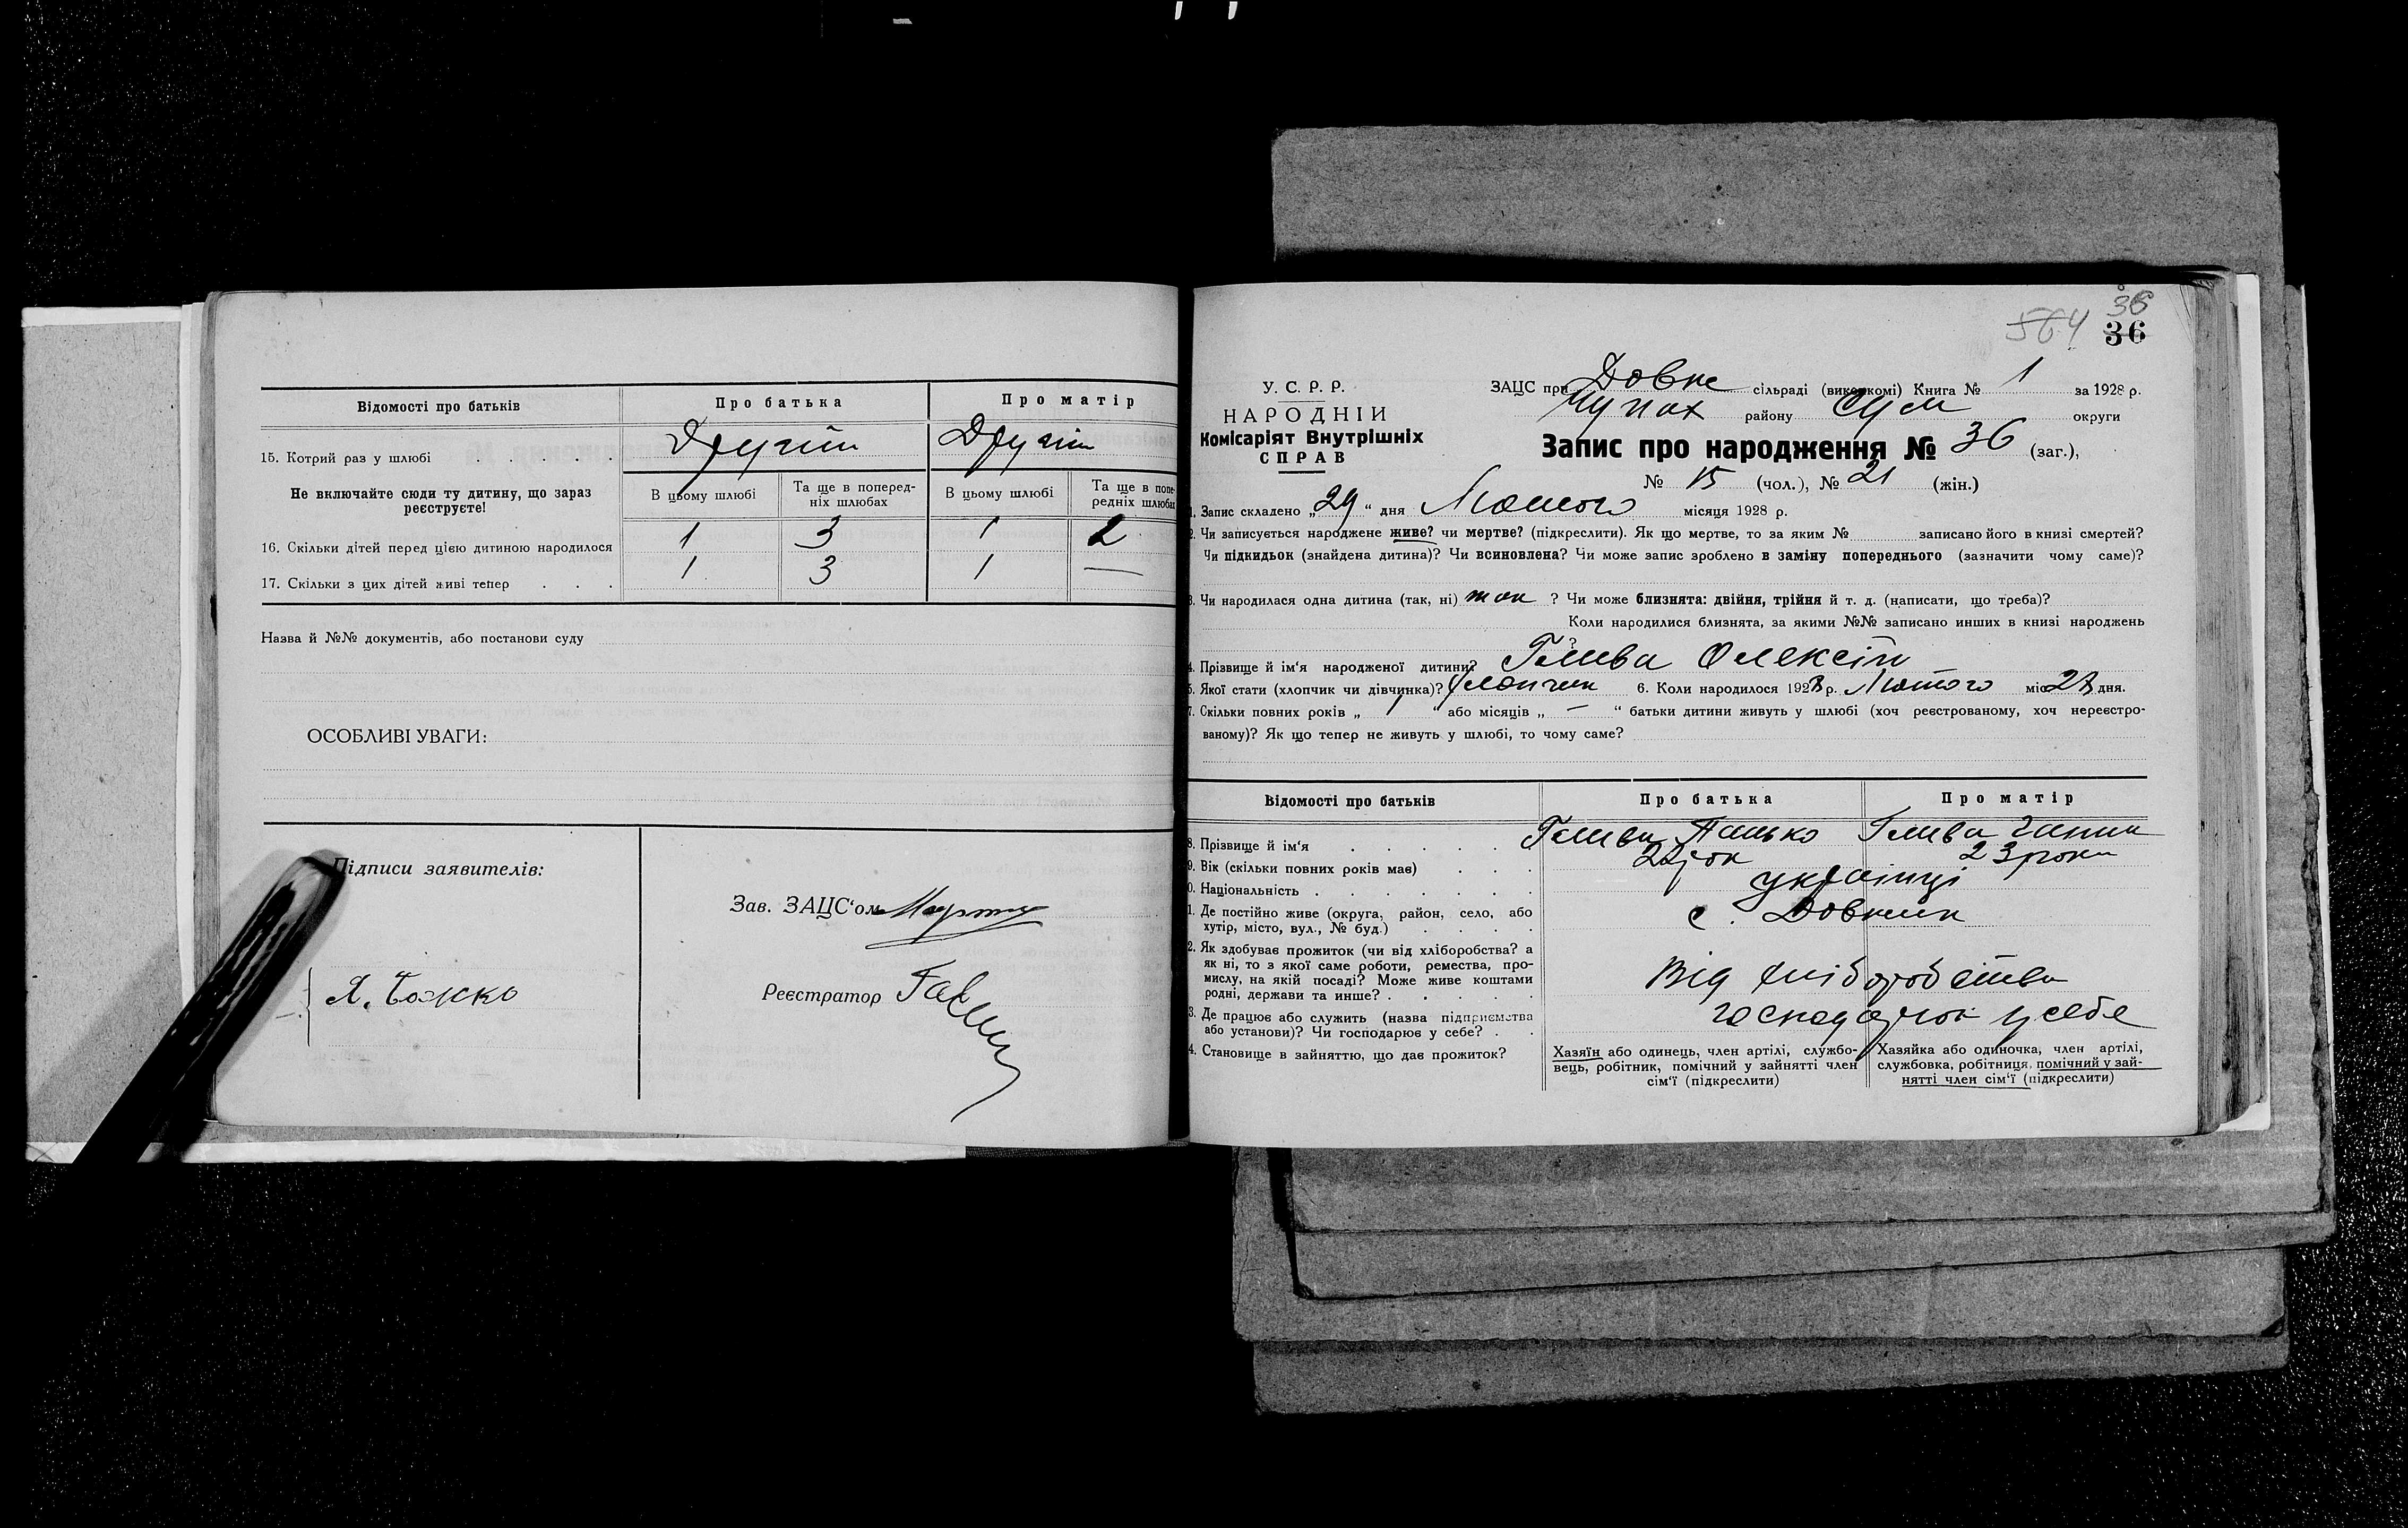 Відомості про батьків Про батька Про матір
15. Котрий раз у шлюбі Другий Другий
Не включайте сюди ту дитину, що зараз реєструєте!
В цьому шлюбі Та ще в попередніх шлюбах В цьому шлюбі Та ще в попередніх шлюбах
16. Скільки дітей перед цією дитиною народилося 1 3 1 2
17. Скільки з цих дітей живі тепер 1 3 1 —
Назва й №№ документів, або постанови суду
ОСОБЛИВІ УВАГИ:
Підписи заявителів:
Зав. ЗАЦС'ом
Я. Божко
Реєстратор
564 36
36
У. С. Р. Р.
НАРОДНІЙ
Комісаріят Внутрішніх
СПРАВ
ЗАЦС при Довже сільраді (виконкомі) Книга № 1 за 1928 р.
району Сум округи
Запис про народження № 36 (заг.),
№ 15 (чол.), № 21 (жін.)
1. Запис складено „29“ дня Лютого місяця 1928 р.
2. Чи записується народжене живе? чи мертве? (підкреслити). Як що мертве, то за яким № записано його в книзі смертей?
Чи підкидьок (знайдена дитина)? Чи всиновлена? Чи може запис зроблено в заміну попереднього (зазначити чому саме)?
3. Чи народилася одна дитина (так, ні) так ? Чи може близнята: двійня, трійня й т. д. (написати, що треба)?
Коли народилися близнята, за якими №№ записано инших в книзі народжень
4. Прізвище й ім'я народженої дитини? Олексій
5. Якої стати (хлопчик чи дівчинка)? Хлопчик 6. Коли народилося 1928 р. Лютого міс. дня.
7. Скільки повних років „ “ або місяців „ — “ батьки дитини живуть у шлюбі (хоч реєстрованому, хоч нереєстро-
ваному)? Як що тепер не живуть у шлюбі, то чому саме?
Відомості про батьків Про батька Про матір
8. Прізвище й ім'я Панько
9. Вік (скільки повних років має) 23 роки
10. Національність українці
11. Де постійно живе (округа, район, село, або
хутір, місто, вул., № буд.) с.
12. Як здобуває прожиток (чи від хліборобства? а
як ні, то з якої саме роботи, ремества, про-
мислу, на якій посаді? Може живе коштами
родні, держави та инше? Від хліборобства
13. Де працює або служить (назва підприємства
або установи)? Чи господарює у себе? у себе
14. Становище в зайняттю, що дає прожиток?
Хазяїн або одинець, член артілі, службо-
вець, робітник, помічний у зайнятті член
сім'ї (підкреслити)
Хазяйка або одиночка, член артілі,
службовка, робітниця, помічний у зай-
нятті член сім'ї (підкреслити)